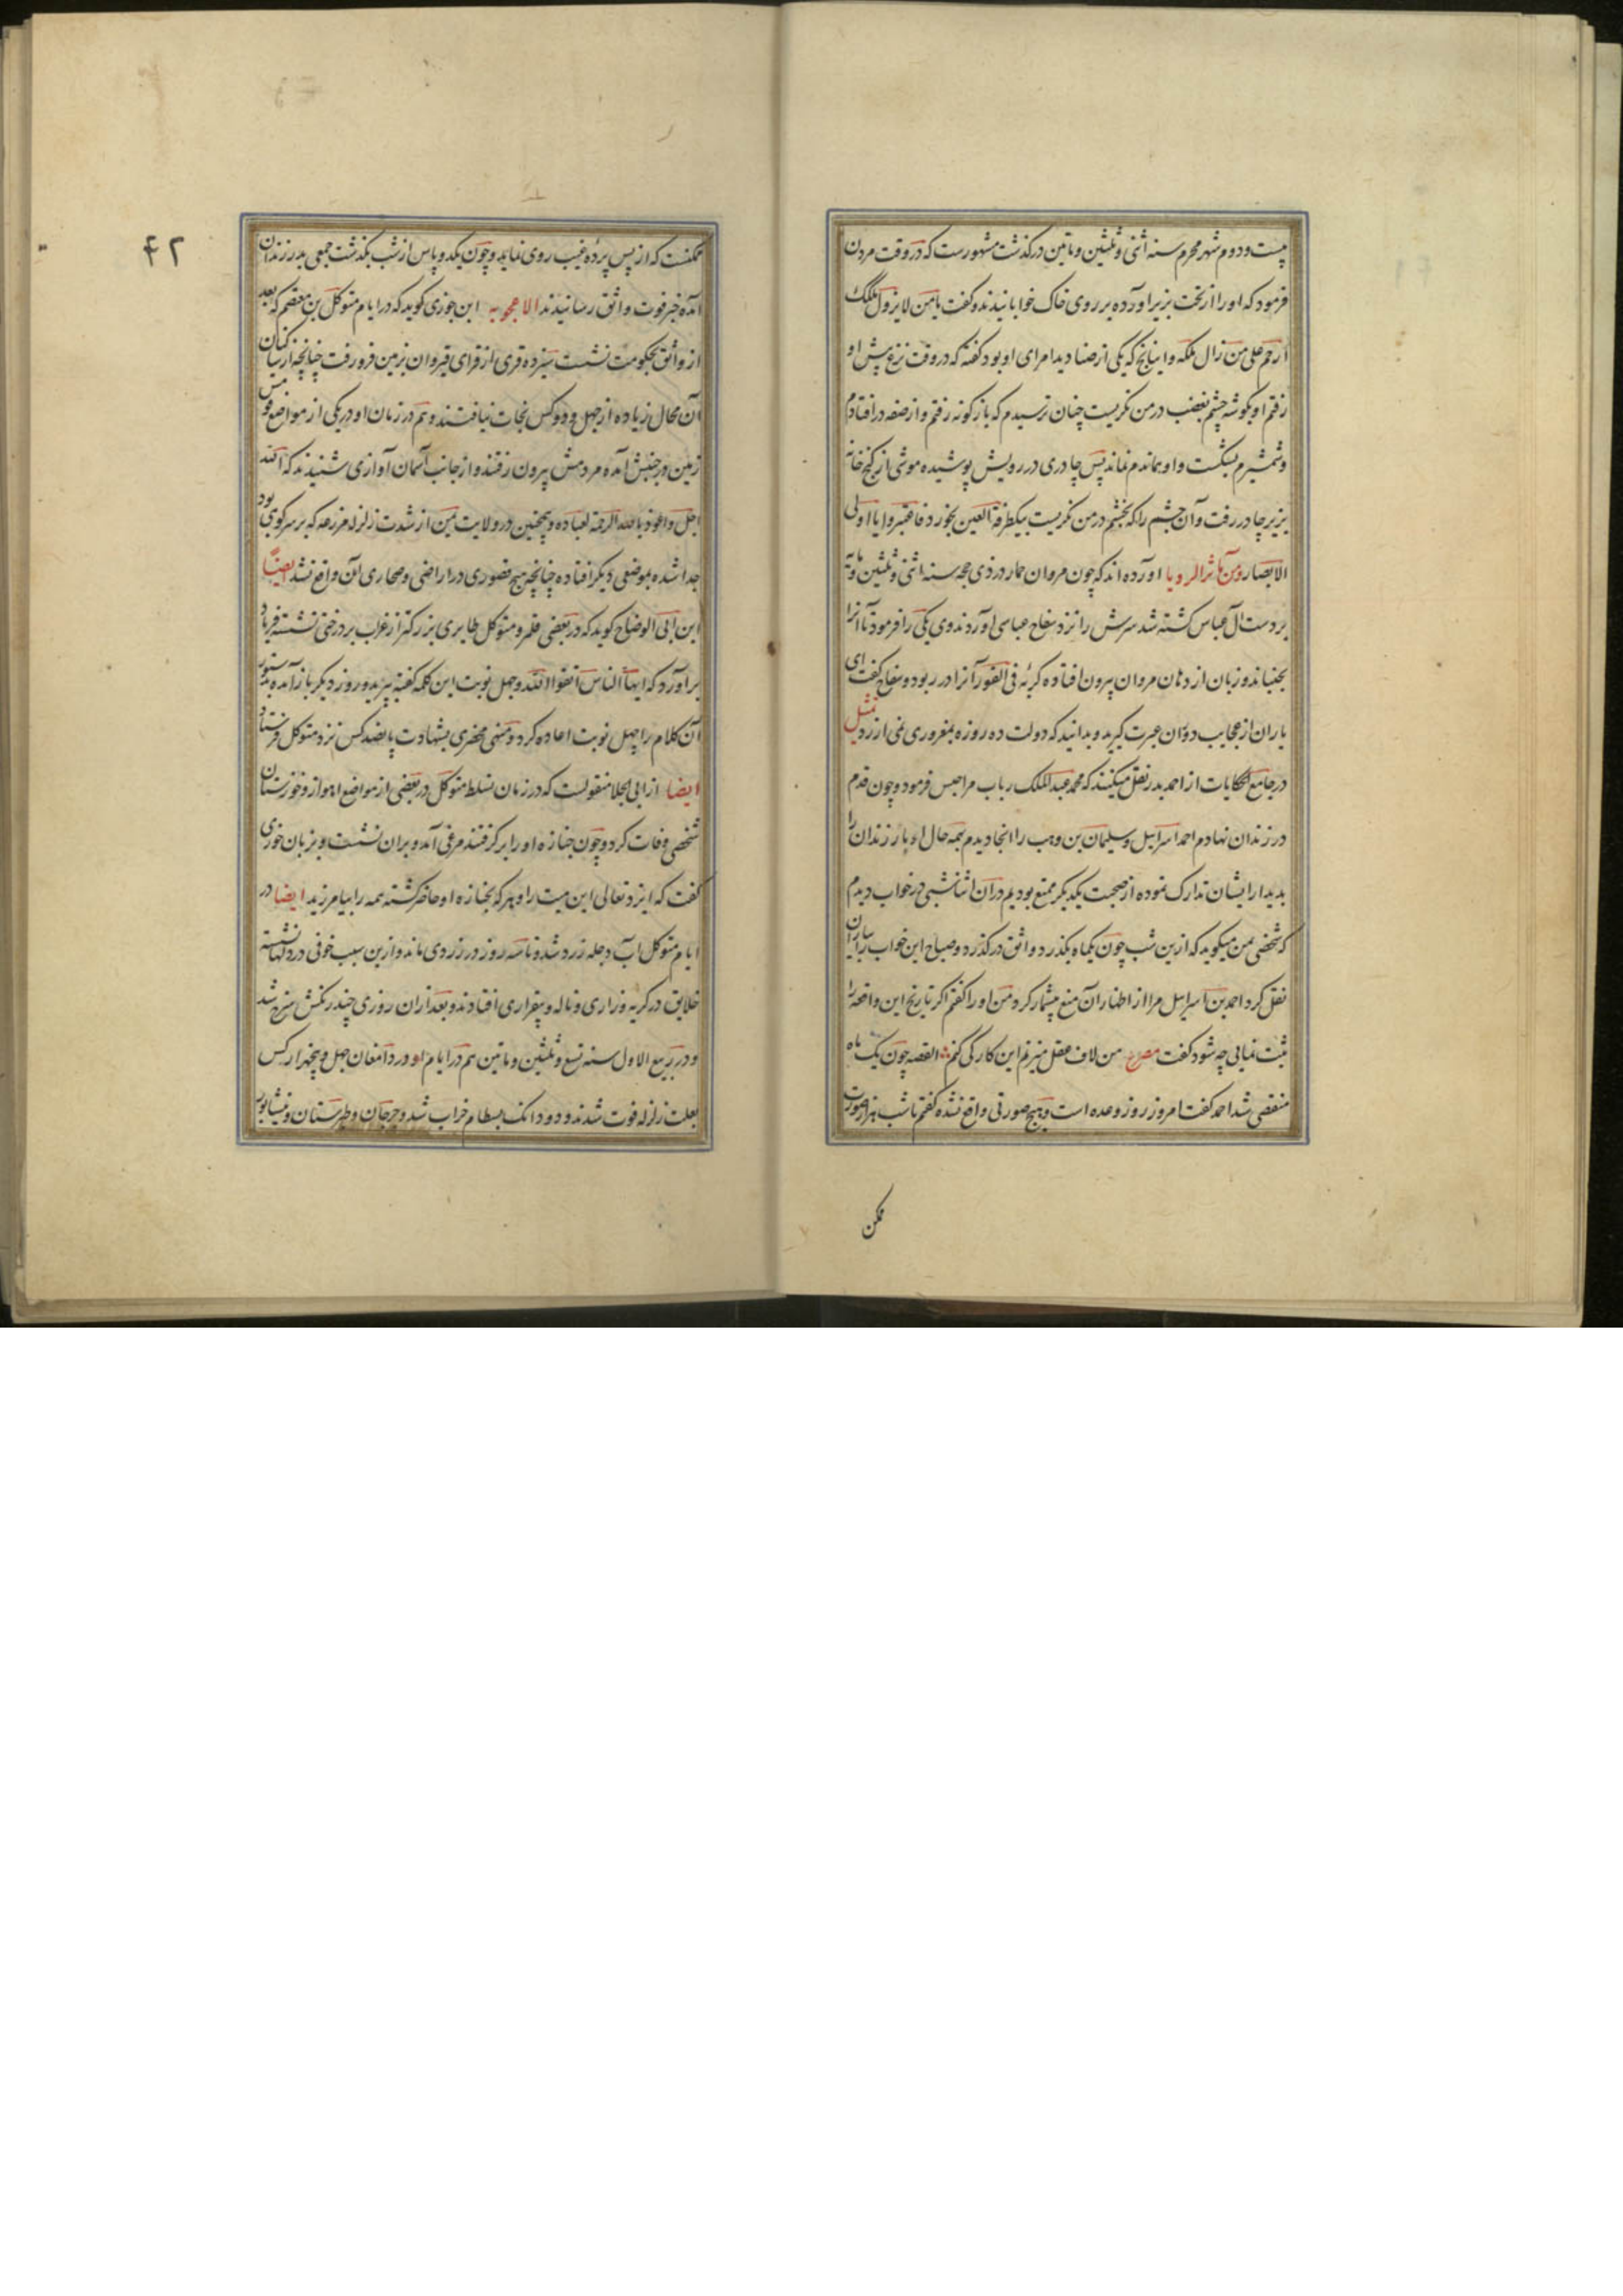 بیست و دوم شهر محرم سنه اثنی و ثلثین و ماتین درکذشت مشهورست که در وقت مردن
فرمود که اورا از تخت بزیر آورده بر روی خاک خوابانیدند و گفت یا من لا یزول ملکه
ارحم علی من زال ملکه و ایتاخ که یکی از صنادید امرای او بود کفته که در وقت نزع پیش او
رفتم او بکوشه چشم بغضب در من نکریست چنان ترسیدم که بازکونه رفتم و از صفه در افتادم
و شمشیرم بشکست و او همان دم نماند پس چادری در رویش پوشیده موشی از کنج خانه
بزیر چادر رفت و آن چشم را که بخشم در من نکریست بیکطرفة العین بخورد فاعتبروا یا اولی
الابصار ومن مآثر الرویا آورده‌اند که چون مروان حمار در ذی حجه سنه اثنی و ثلثین و مایة
بر دست آل عباس کشته شد سرش را نزد سفاح عباسی آوردند وی یکی را فرمود تا آنرا
بجنباند و زبان از دهان مروان بیرون افتاده کربه فی الفور آنرا در ربود و سفاح کفت ای
یاران از عجایب دوران عبرت کیرید و بدانید که دولت ده روزه بمغروری نمی ارزد مثل
در جامع الحکایات از احمد بدر نقل میکنند که محمد عبدالملک زیات مرا حبس فرمود و چون قدم
در زندان نهادم احمد اسرائیل و سلیمان بن وهب را انجا دیدم بهمه حال ادبار زندان را
بدیدار ایشان تدارک نموده از صحبت یکدیکر ممتع بودیم در آن اثنا شبی در خواب دیدم
که شخصی بمن میکوید که ازین شب چون یکماه بکذرد واثق درکذرد و صباح این خواب را بیاران
نقل کرد احمد بن اسرائیل مرا از اظهار آن منع بیشمار کرد من اورا کفتم اکر تاریخ این واقعه را
ثبت نمایی چه شود کفت مصرع من لاف عقل میزنم این کار کی کنم القصه چون یک ماه
منقضی شد احمد کفت امروز روز وعده است و هیچ صورتی واقع نشده کفتم تا شب هزار صورت
ممکن
۴۲
ممکنست که از پس پرده غیب روی نماید و چون یکدو پاس از شب بکذشت جمعی بدر زندان
آمده خبر فوت واثق رسانیدند الاعجوبه ابن جوزی کوید که در ایام متوکل بن معتصم که بعد
از واثق بحکومت نشست سیزده قری از قرای قیروان بزمین فرو رفت چنانچه از ساکنان
آن محال زیاده از چهل و دو کس نجات نیافتند و هم در زمان او در یکی از مواضع
زمین در جنبش آمده مردمش بیرون رفتند و از جانب آسمان آوازی شنیدند که الله
اجل و اعوذ بالله الرحمة لعباده و همچنین در ولایت یمن از شدت زلزله مزرعه که بر سر کوی بود
جدا شده بموضعی دیکر افتاده چنانچه هیچ قصوری در اراضی و صحاری آن واقع نشد ایضا
ابن ابی الوضاح کوید که در بعضی قلمرو متوکل طایری بزرکتر از غراب بر درختی نشسته فریاد
برآورد که ایها الناس اتقوا الله و چهل نوبت این کلمه کفته بپرید و روز دیکر باز آمده بدستور
آن کلام را چهل نوبت اعاده کرد و منهی محضری بشهادت پانصد کس نزد متوکل فرستاد
ایضا از ابی العلا منقولست که در زمان تسلط متوکل در بعضی از مواضع اهواز و خوزستان
شخصی وفات کرد و چون جنازه اورا برکرفتند مرغی آمد و بر ان نشست و بزبان خوزی
کفت که ایزد تعالی این میت را و هر که بجنازه او حاضر کشته همه را بیامرزید ایضا در
ایام متوکل آب دجله زرد شد و تا سه روز در زردی ماند و ازین سبب خوفی در دلها نشسته
خلایق در کریه و زاری و ناله و بیقراری افتادند و بعد از ان روزی چند رنکش سرخ شد
و در ربیع الاول سنه تسع و ثلثین و ماتین هم در ایام او در دامغان چهل و پنجهزار کس
بعلت زلزله فوت شدند و دو دانک بسطام خراب شد و جرجان و طبرستان و نیشابور